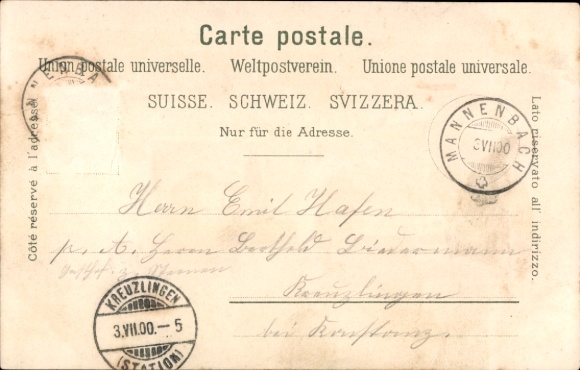 Carte postale.
Union postale universelle. Weltpostverein. Unione postale universale.
SUISSE. SCHWEIZ. SVIZZERA.
Nur für die Adresse.
Côté réservé à l'adresse.
Lato riservato all' indirizzo.
MANNENBACH
3 VII 00
Herrn Emil Hafen
p. A. Herrn Berthold Biedermann
Kreuzlingen
bei Konstanz.
KREUZLINGEN
3.VII.00.-5
(STATION)